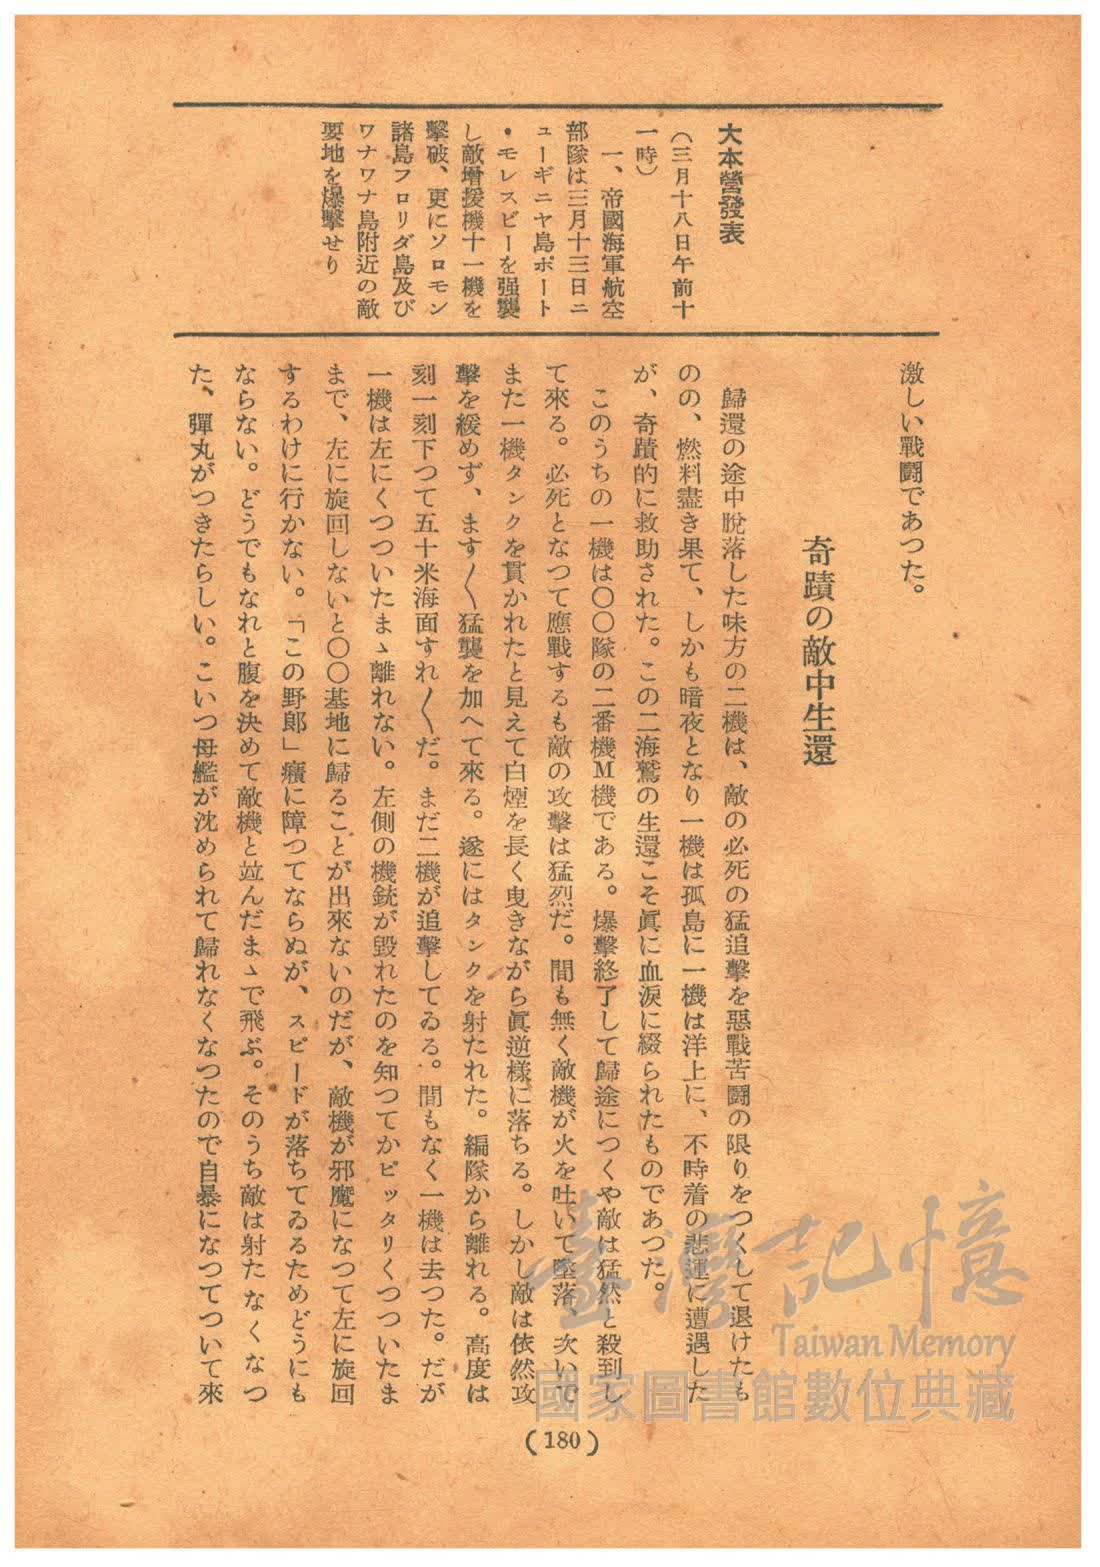 大本營發表
（三月十八日午前十
一時）
一、帝國海軍航空
部隊は三月十三日ニ
ューギニヤ島ポート
・モレスビーを强襲
し敵增援機十一機を
擊破、更にソロモン
諸島フロリダ島及び
ワナワナ島附近の敵
要地を爆擊せり
激しい戰鬪であつた。
奇蹟の敵中生還
歸還の途中脫落した味方の二機は、敵の必死の猛追擊を惡戰苦鬪の限りをつくして退けたも
のの、燃料盡き果て、しかも暗夜となり一機は孤島に一機は洋上に、不時着の悲運に遭遇した
が、奇蹟的に救助された。この二海鷲の生還こそ眞に血淚に綴られたものであつた。
このうちの一機は〇〇隊の二番機M機である。爆擊終了して歸途につくや敵は猛然と殺到し
て來る。必死となつて應戰するも敵の攻擊は猛烈だ。間も無く敵機が火を吐いて墜落、次いで
また一機タンクを貫かれたと見えて白煙を長く曳きながら眞逆樣に落ちる。しかし敵は依然攻
擊を緩めず、ます〱猛襲を加へて來る。遂にはタンクを射たれた。編隊から離れる。高度は
刻一刻下つて五十米海面すれ〱だ。まだ二機が追擊してゐる。間もなく一機は去つた。だが
一機は左にくつついたまゝ離れない。左側の機銃が毀れたのを知つてかピッタリくつついたま
まで、左に旋回しないと〇〇基地に歸ることが出來ないのだが、敵機が邪魔になつて左に旋回
するわけに行かない。「この野郞」癪に障つてならぬが、スピードが落ちてゐるためどうにも
ならない。どうでもなれと腹を決めて敵機と竝んだまゝで飛ぶ。そのうち敵は射たなくなつ
た、彈丸がつきたらしい。こいつ母艦が沈められて歸れなくなつたので自暴になつてついて來
(180)
臺灣記憶
Taiwan Memory
國家圖書館數位典藏